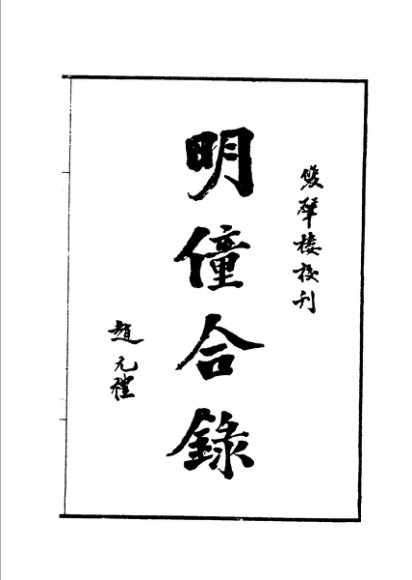 雙肇樓校刊
明僮合錄
趙元禮